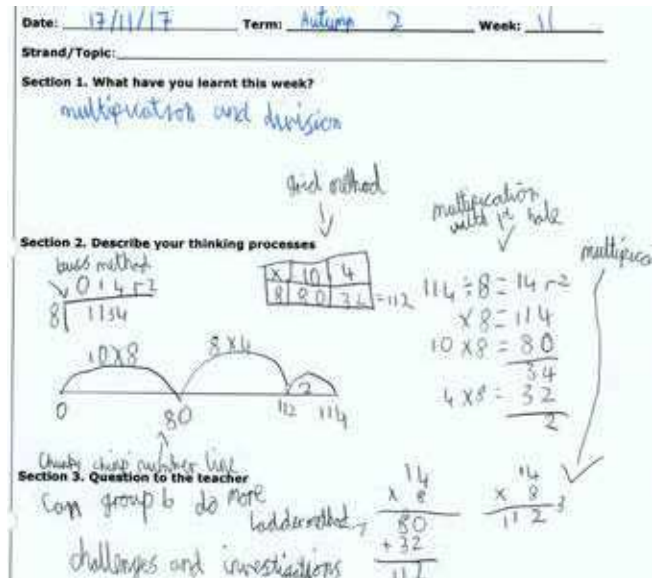 Date: 17/11/17 Term: Autumn 2 Week: 11
Strand/Topic:
Section 1. What have you learnt this week?
multiplication and division
grid method
multiplication
Section 2. Describe your thinking processes
method
014 r2
8 1134
x 10 4
8 80 32 =112
114 ÷ 8 = 14 r2
x 8 = 114
10 x 8 = 80
34
4 x 8 = 32
2
10 x 8 8 x 4 2
0 80 112 114
number line
Section 3. Question to the teacher
Can group 6 do more
challenges and investigations
ladder method
14
x 8
80
+ 32
112
14
x 8
112 3